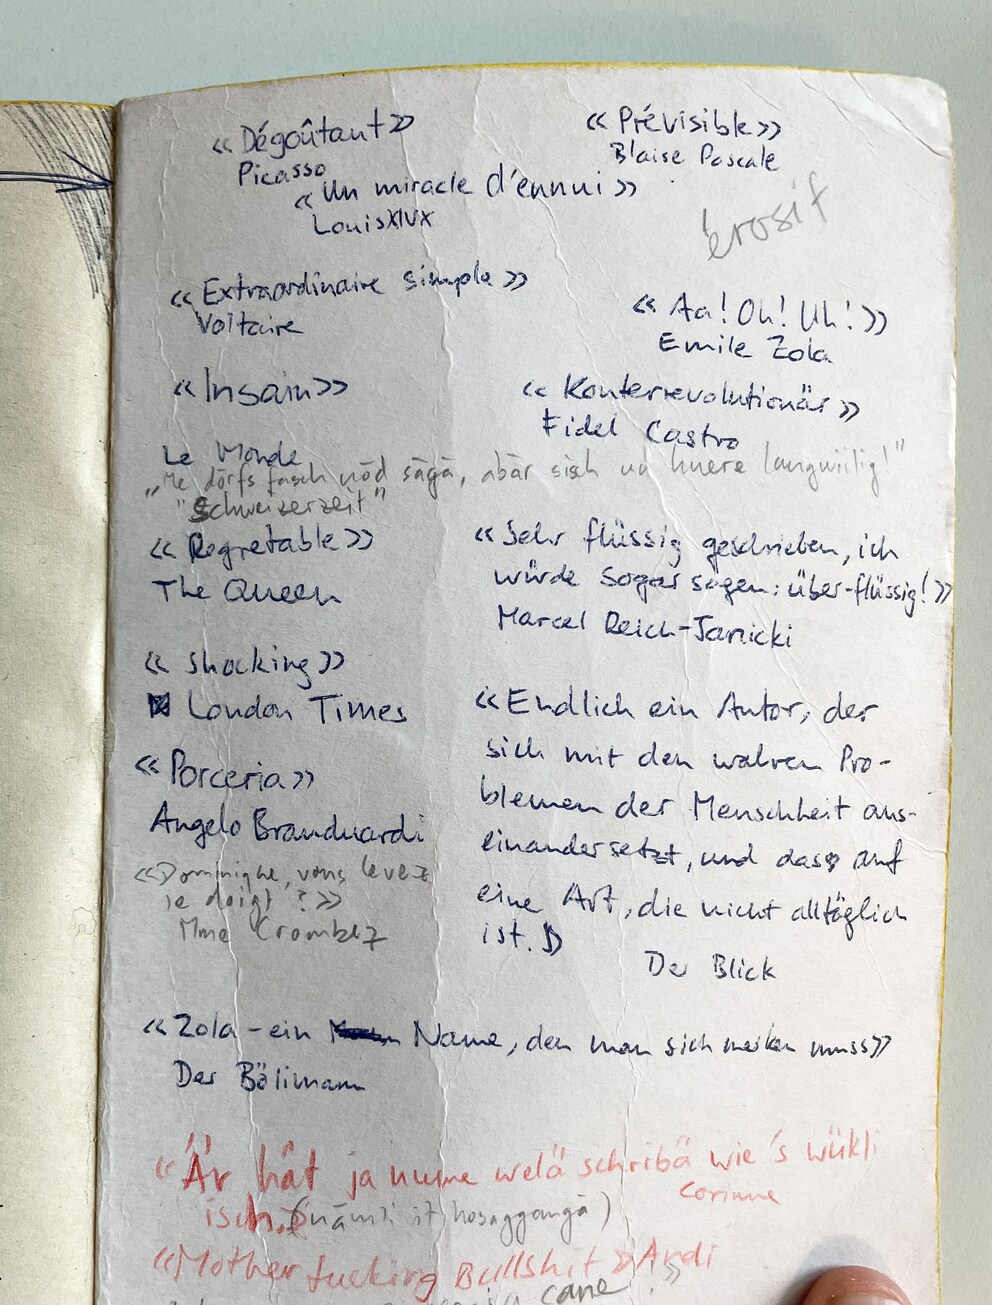 «Dégoûtant»
Picasso
«Prévisible»
Blaise Pascale
«Un miracle d'ennui»
Louis XIVX
érosif
«Extraordinaire simple»
Voltaire
«Aa! Oh! Uh!»
Emile Zola
«Insain»
Le Monde
«Konterrevolutionär»
Fidel Castro
„Me dörfs fasch nöd sägä, abär sisch uu huere langwiilig!"
"Schweizerzeit"
«Regretable»
The Queen
«Sehr flüssig geschrieben, ich
würde sogar sagen: über-flüssig!»
Marcel Reich-Janicki
«Shocking»
London Times
«Porceria»
Angelo Branduardi
«Dominique, vous levez
le doigt?»
Mme Crombez
«Endlich ein Autor, der
sich mit den wahren Pro-
blemen der Menschheit aus-
einandersetzt, und das auf
eine Art, die nicht alltäglich
ist.»
Der Blick
«Zola - ein Name, den man sich merken muss»
Der Bölimann
«Är hät ja nume welä schribä wie's würkli
isch.»
Corinne
(nämli it hosaggangä)
«Motherfucking Bullshit» Ardi
cane!»